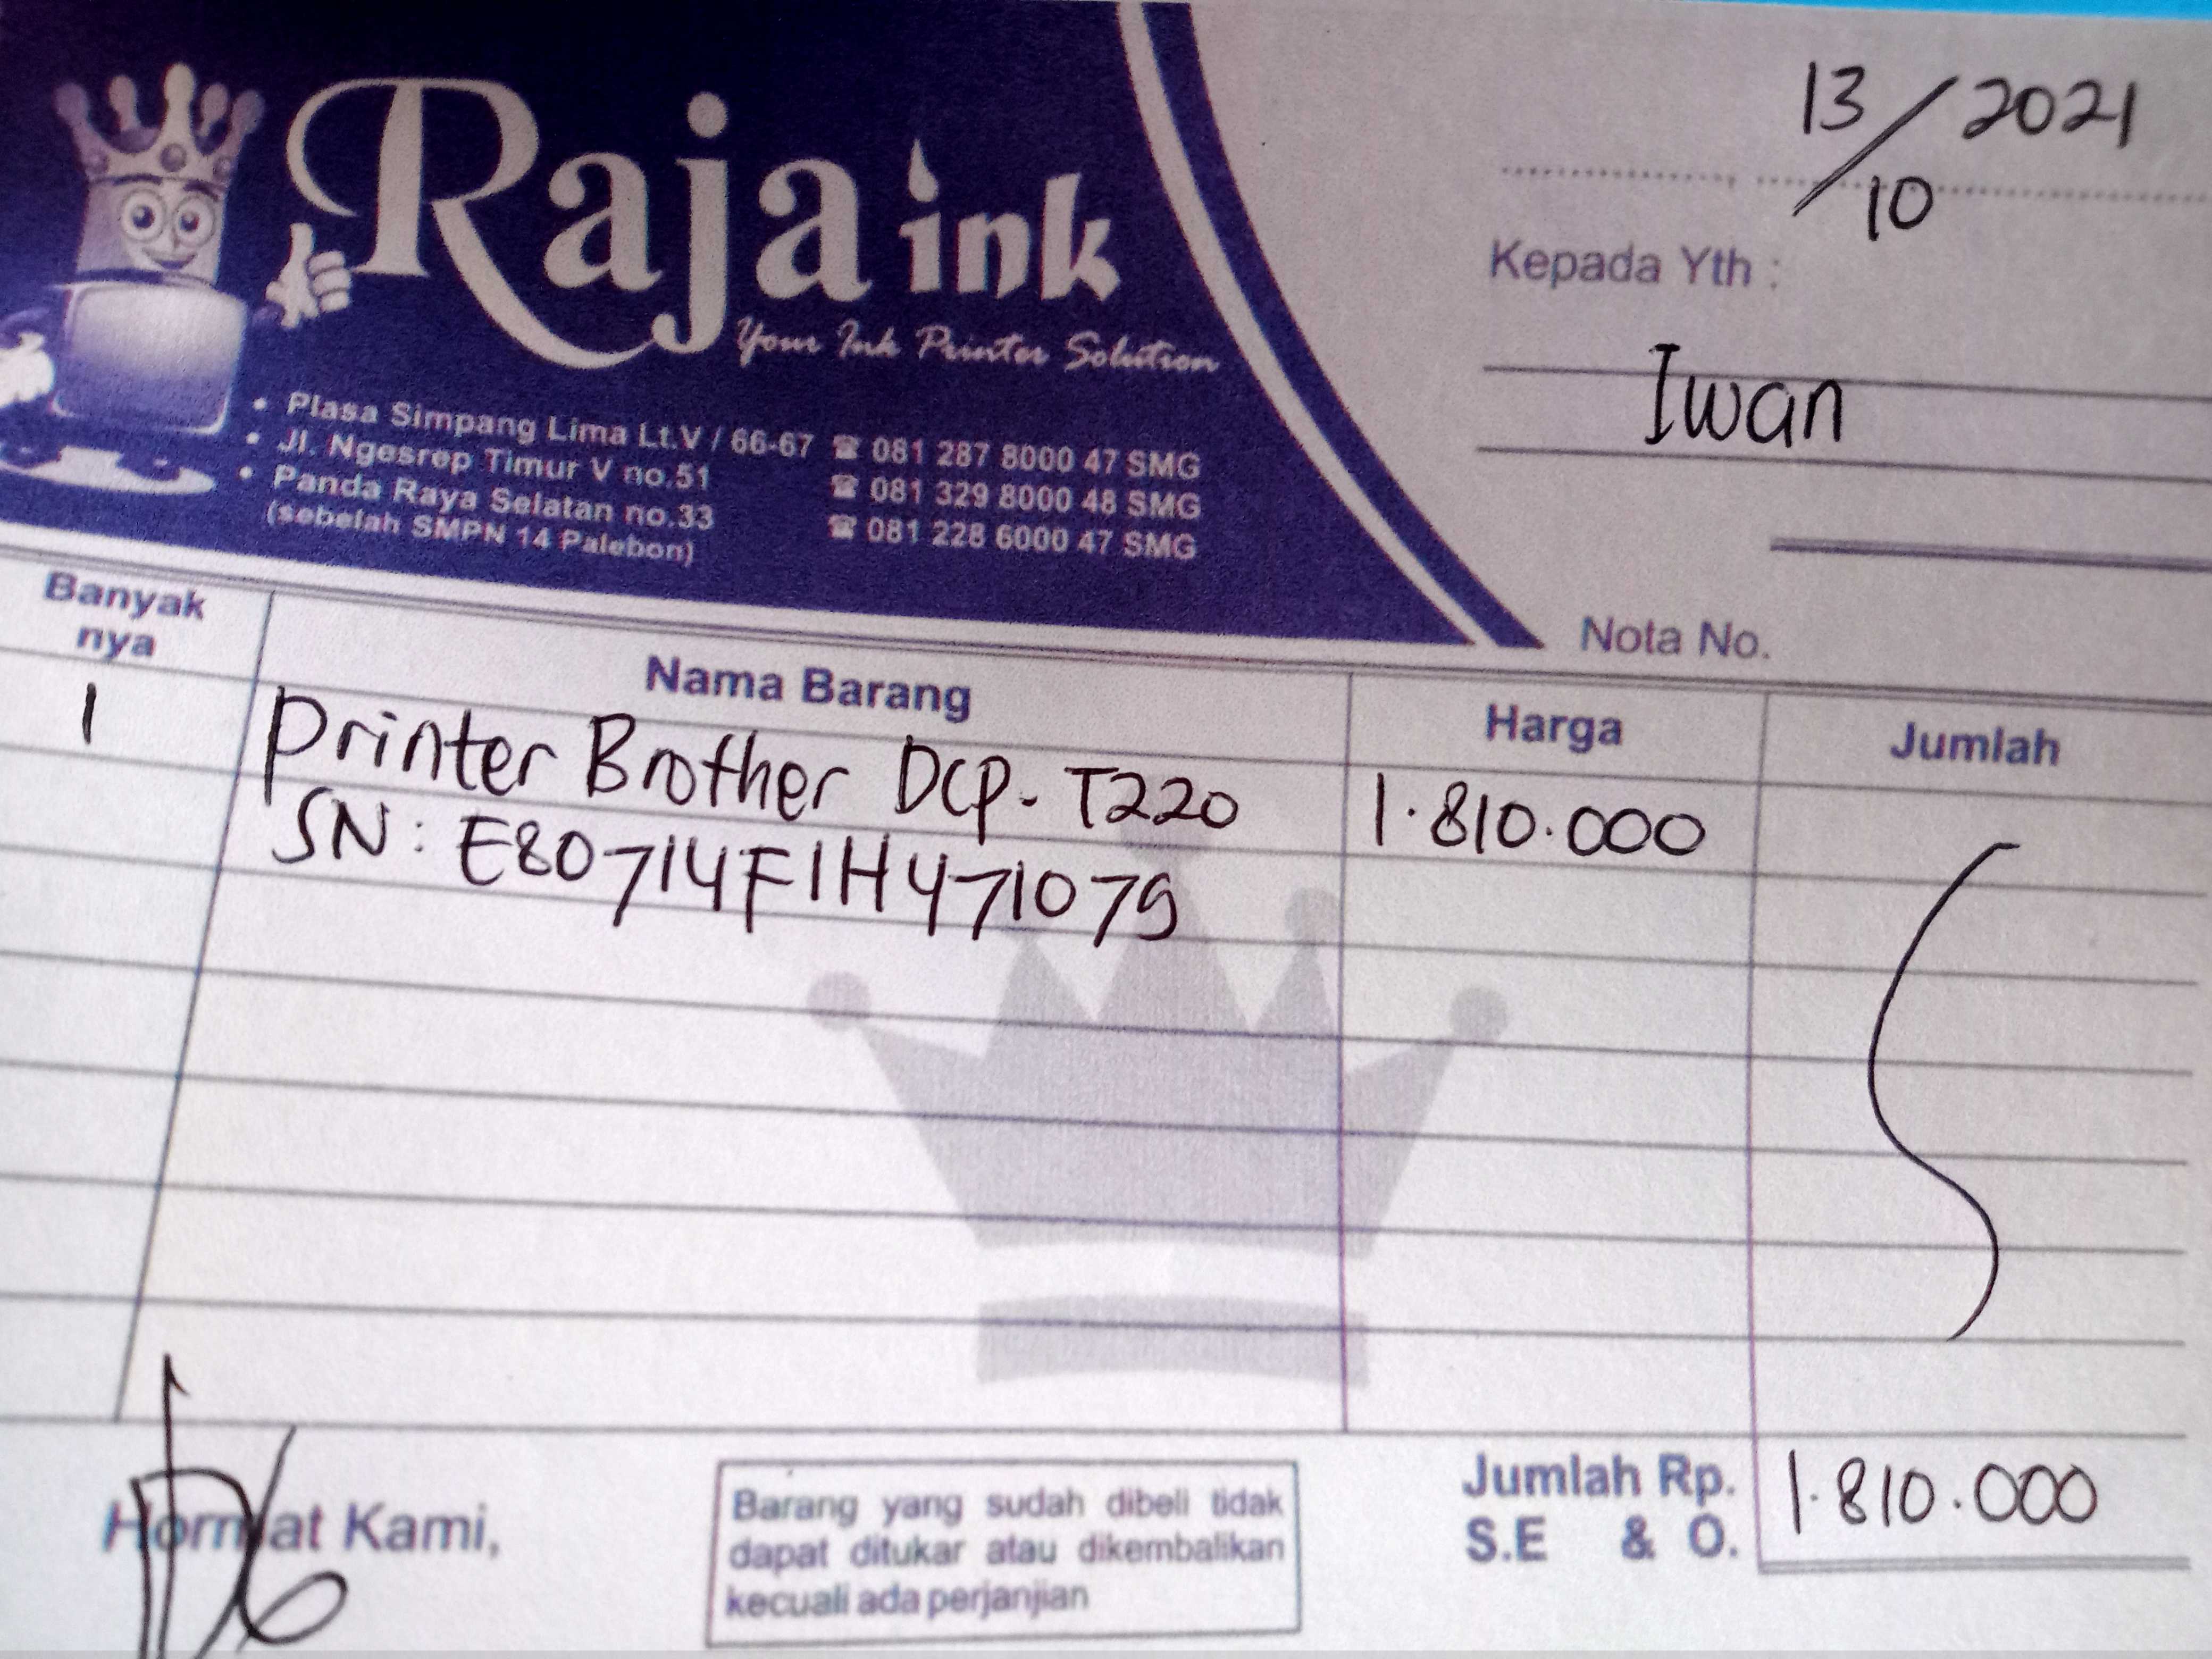 Raja ink
Your Ink Printer Solution
• Plasa Simpang Lima Lt.V / 66-67 ☎ 081 287 8000 47 SMG
• Jl. Ngesrep Timur V no.51 ☎ 081 329 8000 48 SMG
• Panda Raya Selatan no.33 ☎ 081 228 6000 47 SMG
(sebelah SMPN 14 Palebon)
13/10/2021
Kepada Yth :
Iwan
Nota No.
Banyak
nya
Nama Barang
Harga
Jumlah
1 Printer Brother DCP-T220 1.810.000
SN: E80714F1H471079
Hormat Kami,
Barang yang sudah dibeli tidak
dapat ditukar atau dikembalikan
kecuali ada perjanjian
Jumlah Rp. 1.810.000
S.E & O.